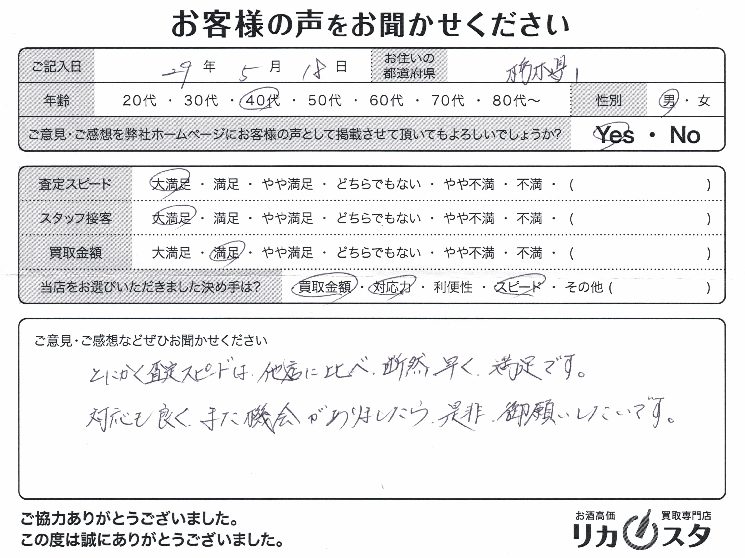 お客様の声をお聞かせください
ご記入日 29 年 5 月 18 日 お住いの都道府県 栃木県
年齢 20代 ・ 30代 ・ 40代 ・ 50代 ・ 60代 ・ 70代 ・ 80代〜 性別 男 ・ 女
ご意見・ご感想を弊社ホームページにお客様の声として掲載させて頂いてもよろしいでしょうか? Yes ・ No
査定スピード 大満足 ・ 満足 ・ やや満足 ・ どちらでもない ・ やや不満 ・ 不満 ・ ( )
スタッフ接客 大満足 ・ 満足 ・ やや満足 ・ どちらでもない ・ やや不満 ・ 不満 ・ ( )
買取金額 大満足 ・ 満足 ・ やや満足 ・ どちらでもない ・ やや不満 ・ 不満 ・ ( )
当店をお選びいただきました決め手は? 買取金額 ・ 対応力 ・ 利便性 ・ スピード ・ その他 ( )
ご意見・ご感想などぜひお聞かせください
とにかく査定スピードは、他店に比べ、断然早く、満足です。
対応も良く、また機会がありましたら、是非、御願いしたいです。
ご協力ありがとうございました。
この度は誠にありがとうございました。
お酒高価 買取専門店
リカスタ